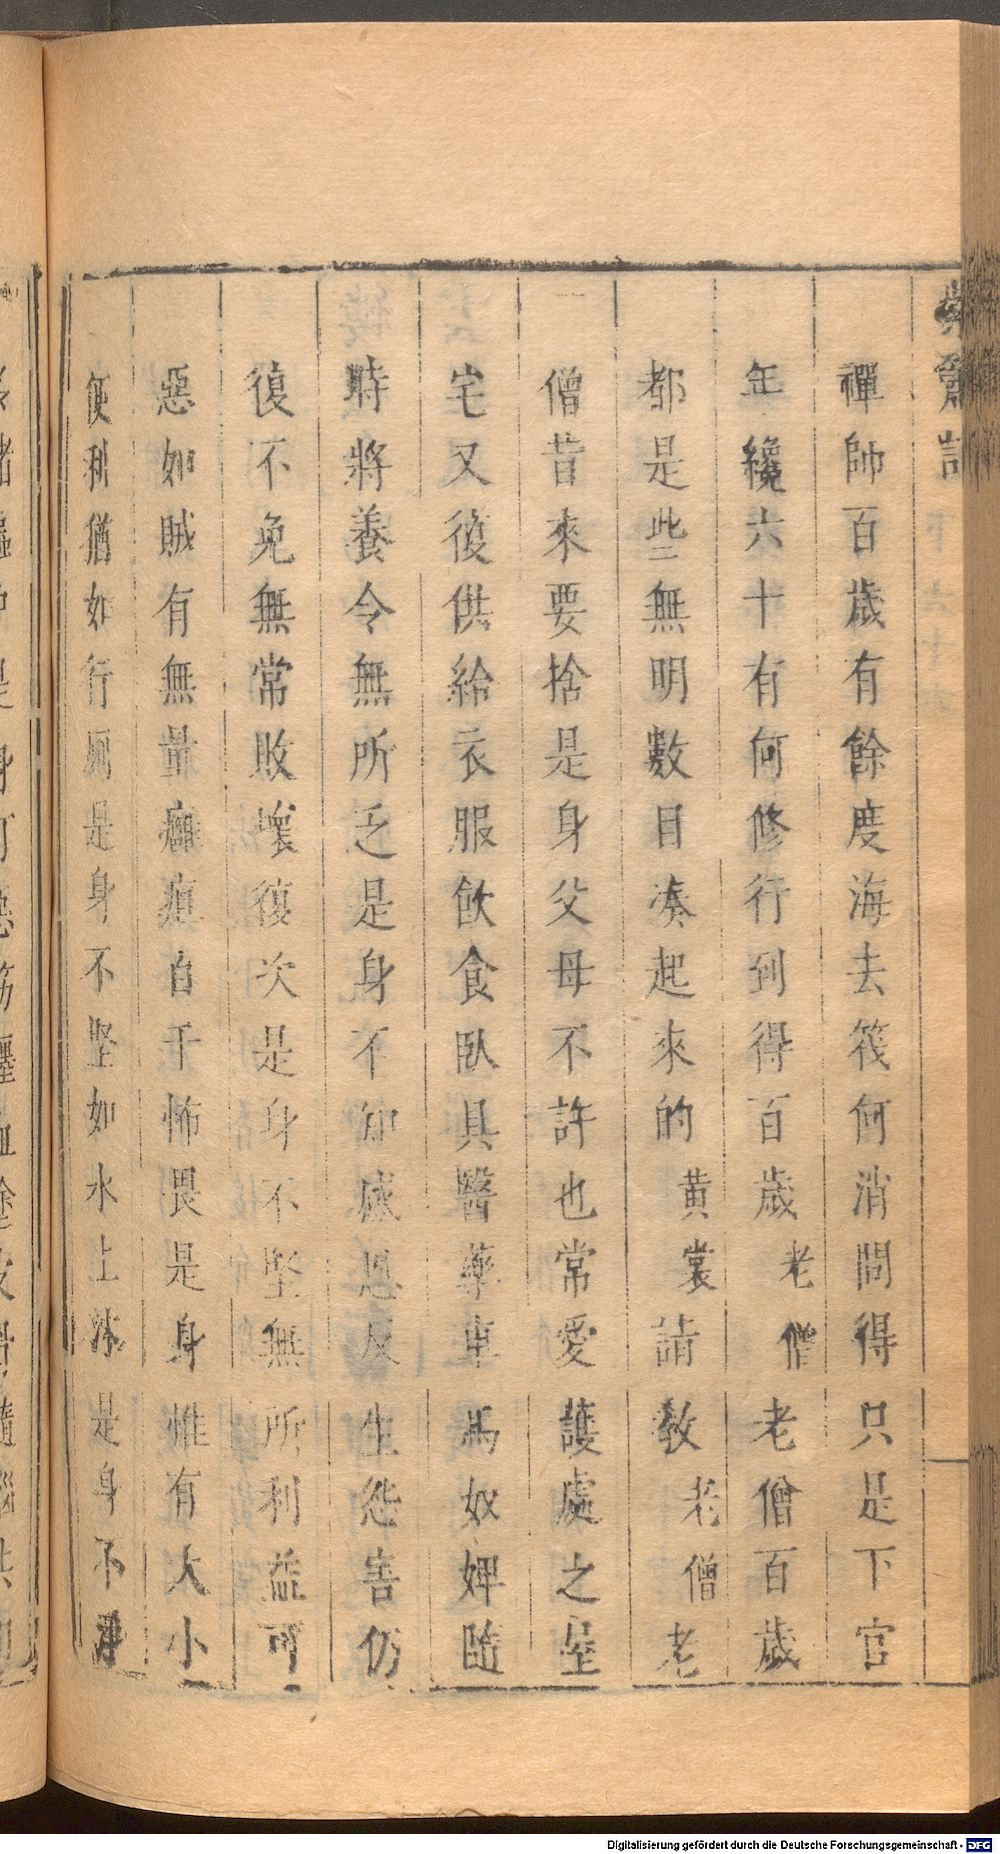 禪師百歲有餘度海去筏何消問得只是下官
年纔六十有何修行到得百歲老僧老僧百歲
都是些無明數目凑起來的黄裳請教老僧老
僧昔來要捨是身父母不許也常愛護處之屋
宅又復供給衣服飲食臥具醫藥車馬奴婢隨
時將養令無所乏是身不知感恩反生怨害仍
復不免無常敗壞復次是身不堅無所利益可
惡如賊有無量癰疽百千怖畏是身惟有大小
便利猶如行厠是身不堅如水上沫是身不淨
Digitalisierung gefördert durch die Deutsche Forschungsgemeinschaft - DFG